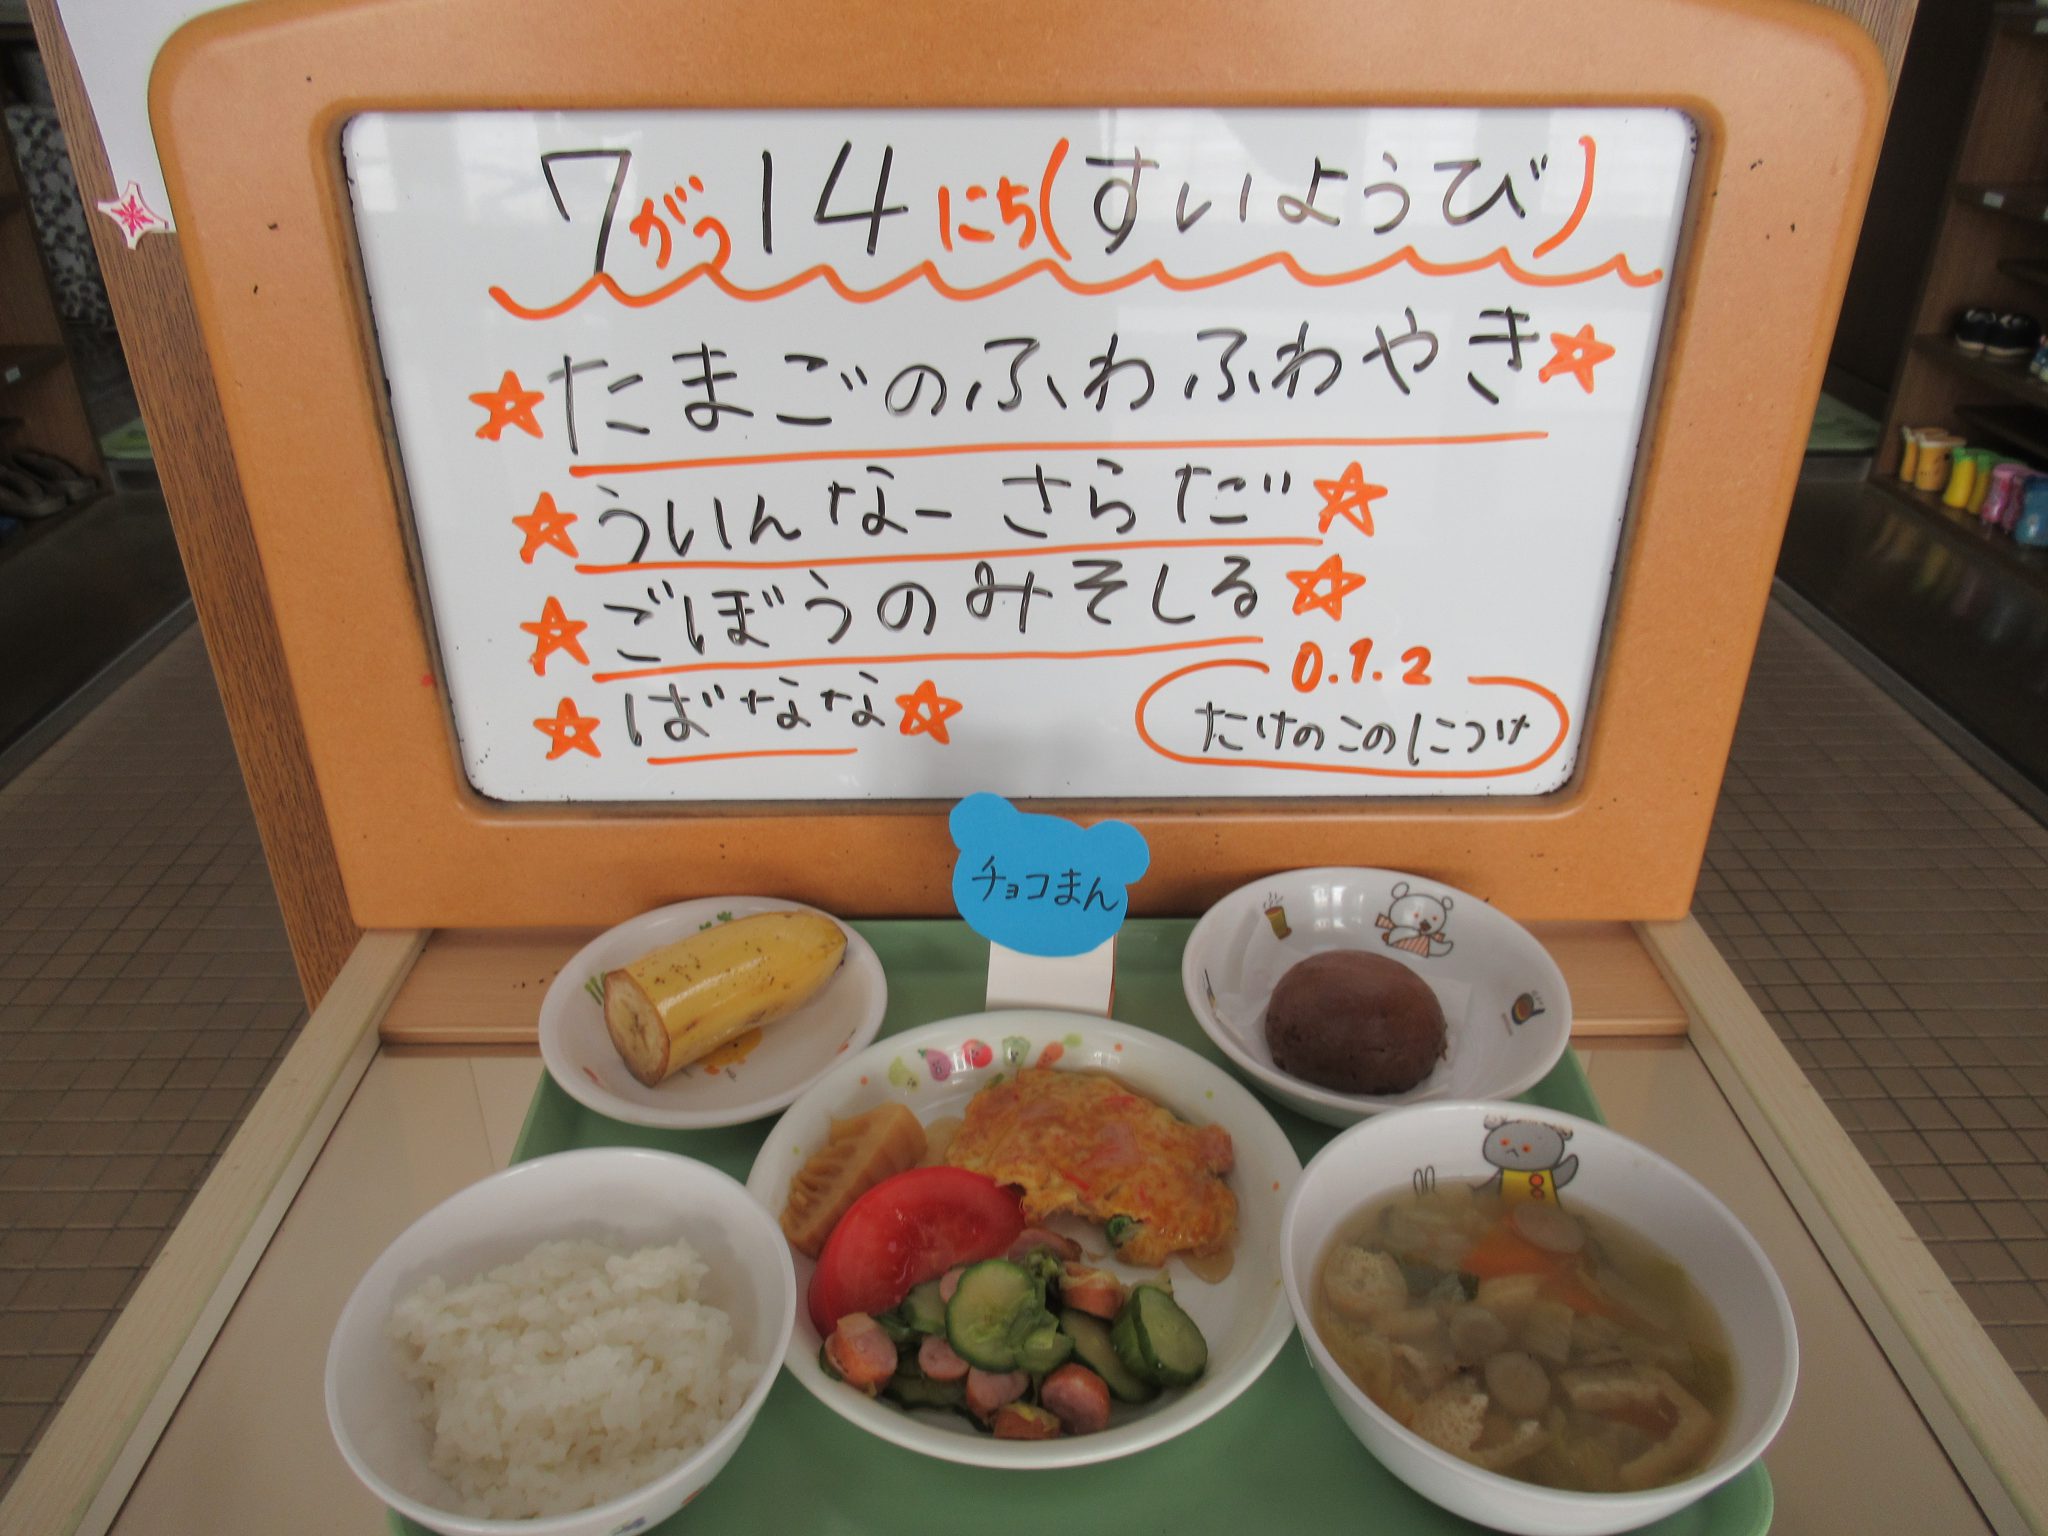 7がつ14にち(すいようび)
たまごのふわふわやき
ういんなーさらだ
ごぼうのみそしる
ばなな
0.1.2
たけのこのにつけ
チョコまん